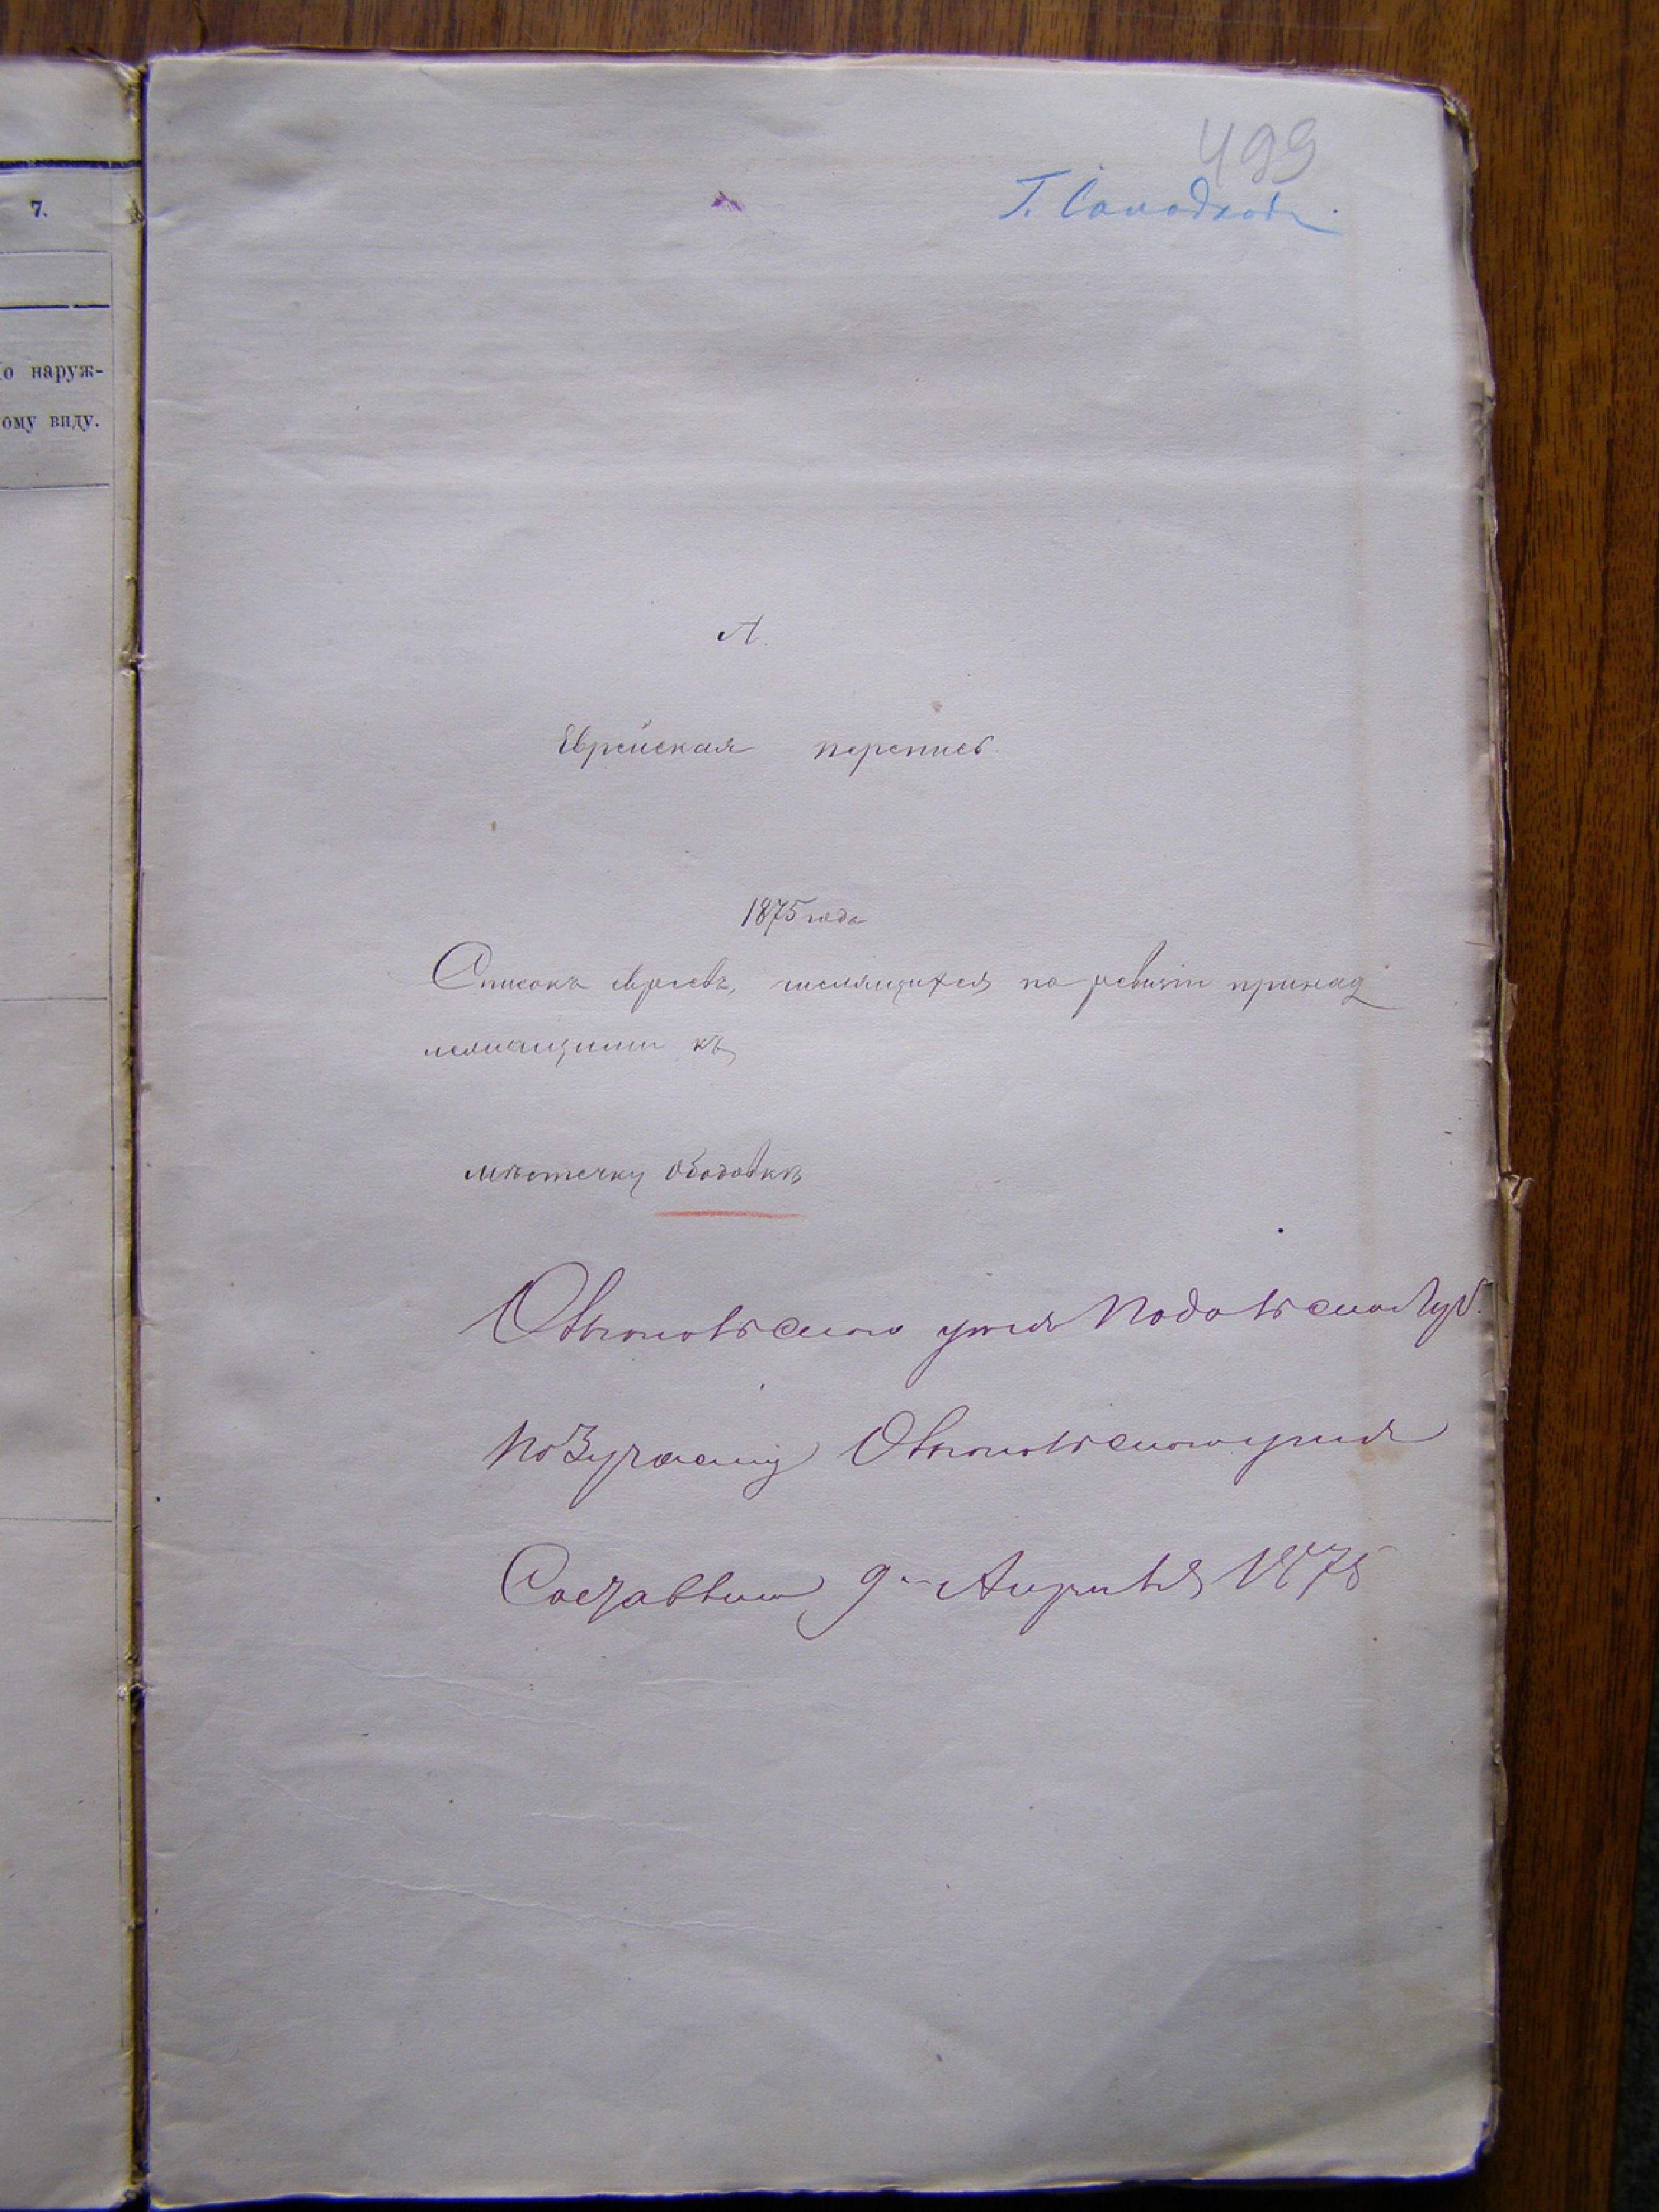 7.
о наруж-
ому виду.
499
Г. Самодхов.
А.
Еврейская перепись.
1875 года
Списокъ евреевъ, числящихся по ревизіи принад
лежащими къ
мѣстечку Ободовкѣ
Ольгопольскаго уѣзда Подольской Губ.
по 3 участку Ольгопольскаго уѣзда
Составленъ 9 Апрѣля 1875